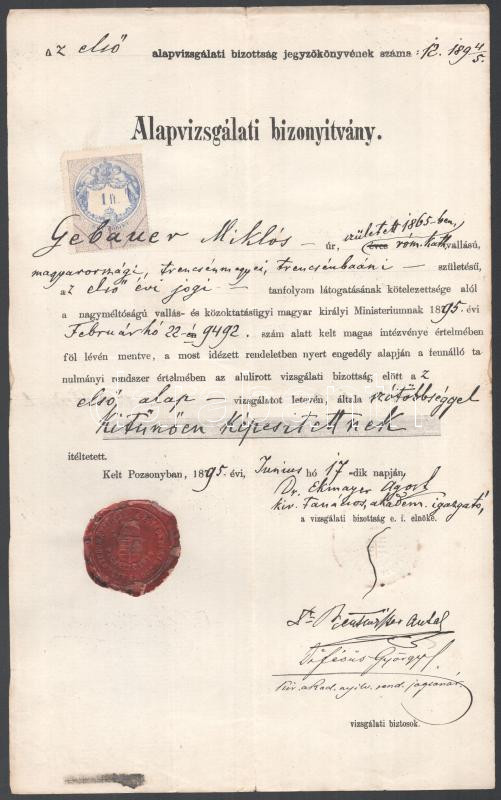 Az első alapvizsgálati bizottság jegyzőkönyvének száma: 12. 1894/5.
Alapvizsgálati bizonyitvány.
1 ft.
Gebauer Miklós — úr, született 1865-ben,
éves róm. kath. vallású,
magyarországi, trencsénmegyei, trencsénbáani — születésű,
az első évi jogi — tanfolyam látogatásának kötelezettsége alól
a nagyméltóságú vallás- és közoktatásügyi magyar királyi Ministeriumnak 1895. évi
Február hó 22-én 9492. szám alatt kelt magas intézvénye értelmében
föl lévén mentve, a most idézett rendeletben nyert engedély alapján a fennálló ta-
nulmányi rendszer értelmében az alulirott vizsgálati bizottság előtt az
első alap — vizsgálatot letevén, általa szótöbbséggel
kitünően képesitettnek
itéltetett.
Kelt Pozsonyban, 1895. évi, Junius hó 17-dik napján,
Dr. Ekmayer Agost
kir. Tanácsos, akadem. igazgató,
a vizsgálati bizottság e. i. elnöke.
Dr. Antal
György
kir. akad. nyilv. rend. jogtanár
vizsgálati biztosok.